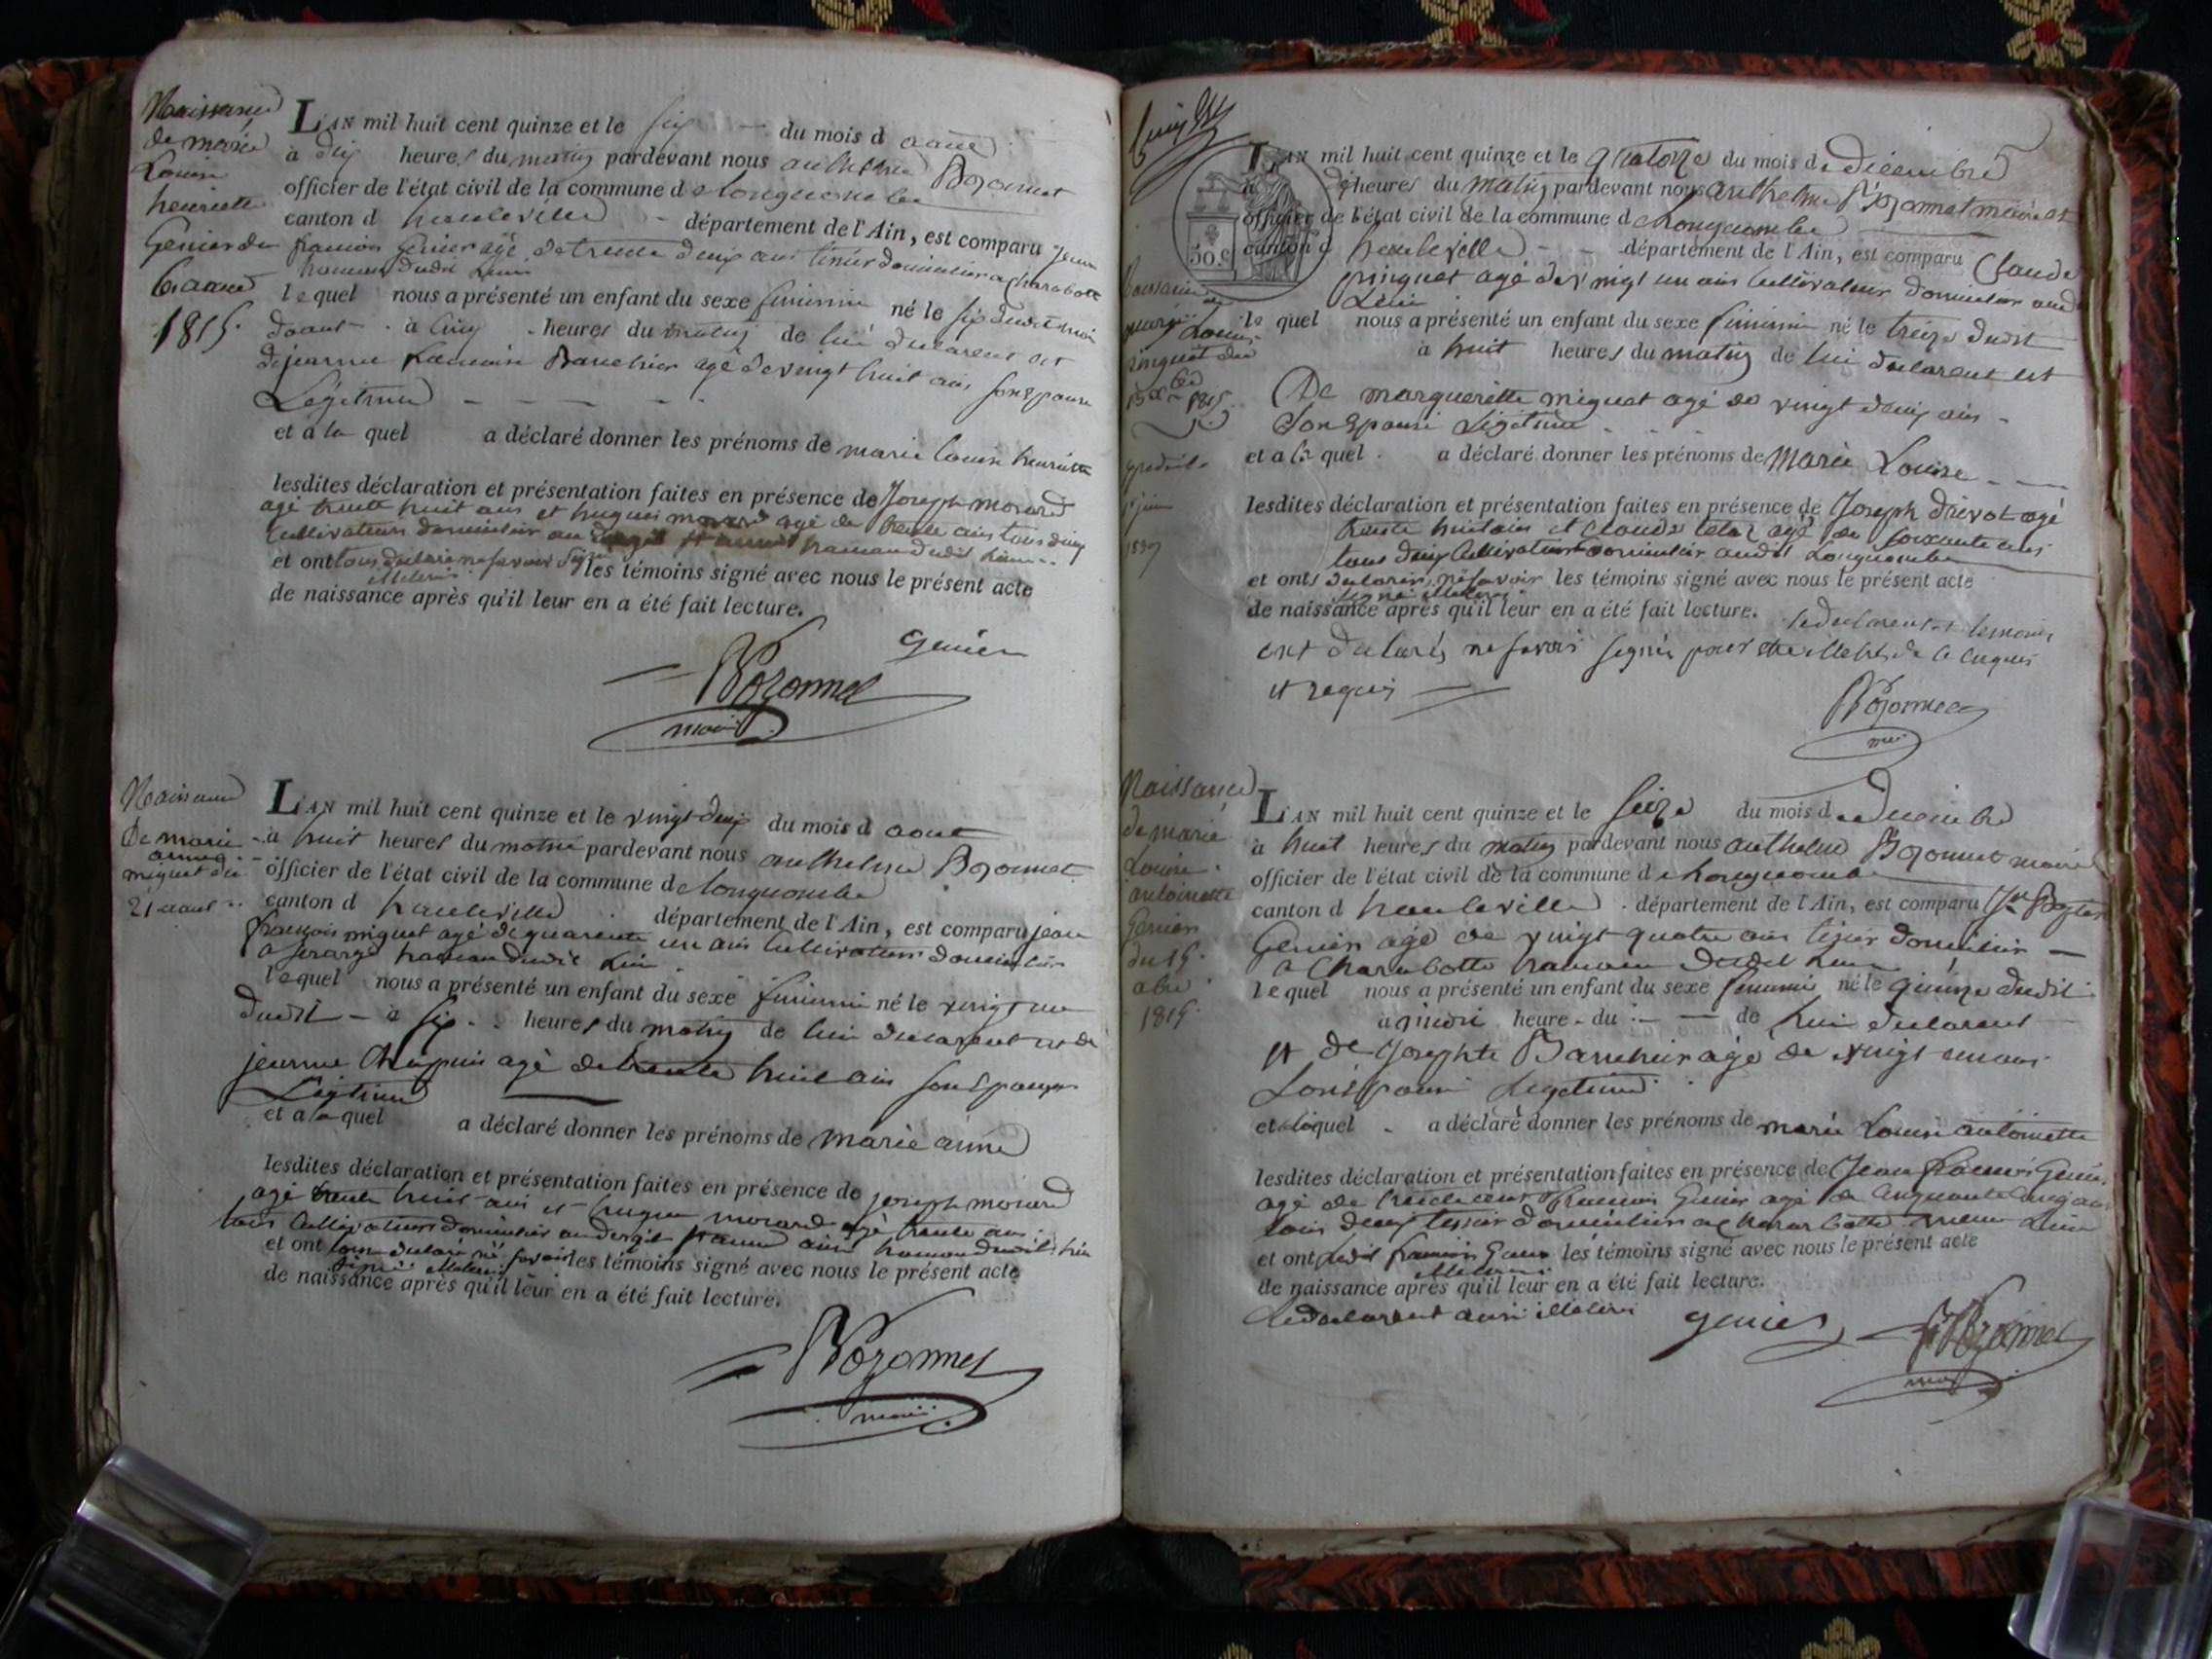 Naissance
de marie
Louise
henriette
Genier du
6 aout
1815.
L'AN mil huit cent quinze et le six du mois d aout
à dix heures du matin pardevant nous anthelme Bozonnet
officier de l'état civil de la commune de longuecombe
canton d hauteville département de l'Ain, est comparu jean
francois genier agé de trente deux ans tissier domicilier a charabotte
hameau dudit Lieu
lequel nous a présenté un enfant du sexe feminin né le six dudit mois
daout à cinq heures du matin de lui declarent et
de jeanne francoise Barchier agé de vingt huit ans son epouse
Légitime
et a la quel a déclaré donner les prénoms de marie louise henriette
lesdites déclaration et présentation faites en présence de Joseph morard
agé trente huit ans et hugues morard agé de trente ans tous deux
Cultivateurs domicilier au hameau dudit Lieu
et ont tous declaré ne savoir signé les témoins signé avec nous le présent acte
de naissance après qu'il leur en a été fait lecture.
genier
Bozonnet
maire
Naissance
De marie
anne
miquet du
21 aout
L'AN mil huit cent quinze et le vingt deux du mois d aout
à huit heures du matin pardevant nous anthelme Bozonnet
officier de l'état civil de la commune de longuecombe
canton d hauteville département de l'Ain, est comparu jean
francois miguet agé de quarente un ans Cultivateur domicilier
a hameau dudit Lieu
lequel nous a présenté un enfant du sexe feminin né le vingt un
dudit à six heures du matin de lui declarent et de
jeanne Chapuis agé de trente huit ans son epouse
Légitime
et a la quel a déclaré donner les prénoms de marie anne
lesdites déclaration et présentation faites en présence de joseph morard
agé trente huit ans et hugue morard agé trente ans
tous Cultivateurs domicilier hameau dudit Lieu
et ont tous declaré ne savoir les témoins signé avec nous le présent acte
de naissance après qu'il leur en a été fait lecture.
Bozonnet
maire
50.c
Naissance
de
marie Louise
pinguet du
13 xbre 1815.
L'AN mil huit cent quinze et le quatorze du mois de Décembre
à heures du matin pardevant nous anthelme Bozonnet maire et
officier de l'état civil de la commune de Longuecombe
canton d hauteville département de l'Ain, est comparu Claude
pinguet agé de vingt un ans Cultivateur domicilier audit
Lieu
le quel nous a présenté un enfant du sexe feminin né le treize dudit
à huit heures du matin de lui declarent et
De margueritte miguet agé de vingt deux ans
Son Epouse Légitime
et a la quel a déclaré donner les prénoms de Marie Louise
lesdites déclaration et présentation faites en présence de Joseph agé
trente huit ans et Claude agé de soixante ans
tous deux Cultivateurs domicilier audit Longuecombe
et ont declarés ne savoir les témoins signé avec nous le présent acte
de naissance après qu'il leur en a été fait lecture. le declarent et temoins
ont declarés ne savoir signés pour de ce enquis
et requis
Bozonnet
maire
Naissance
de marie
Louise
antoinette
Genier
du 15
xbre
1815.
L'AN mil huit cent quinze et le seize du mois de Décembre
à huit heures du matin pardevant nous anthelme Bozonnet maire
officier de l'état civil de la commune de Longuecombe
canton d hauteville département de l'Ain, est comparu Jn Bapte
Genier agé de vingt quatre ans tissier domicilier
a Charabotte hameau dudit Lieu
lequel nous a présenté un enfant du sexe feminin né le quinze dudit
à heure du de lui declarent
et de Josephte Barchier agé de vingt un ans
Son Epouse Légitime
et a laquel a déclaré donner les prénoms de marie Louise antoinette
lesdites déclaration et présentation faites en présence de Jean francois Genier
agé de trente francois Genier agé de cinquante cinq ans
tous deux tissier domicilier a Charabotte meme Lieu
et ont ledit francois les témoins signé avec nous le présent acte
de naissance après qu'il leur en a été fait lecture.
le declarent aussi
genier
Bozonnet
maire